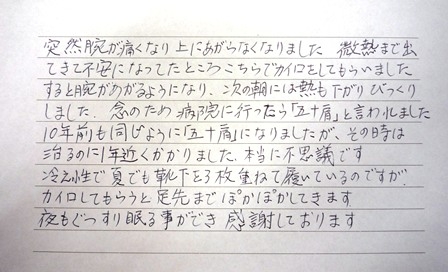 突然腕が痛くなり上にあがらなくなりました 微熱まで出
てきて不安になってたところこちらでカイロをしてもらいました
すると腕があがるようになり、次の朝には熱も下がりびっくり
しました。念のため病院に行ったら「五十肩」と言われました
10年前も同じように「五十肩」になりましたが、その時は
治るのに1年近くかかりました。本当に不思議です
冷え性で夏でも靴下を3枚重ねて履いているのですが、
カイロしてもらうと足先までぽかぽかしてきます
夜もぐっすり眠る事ができ 感謝しております